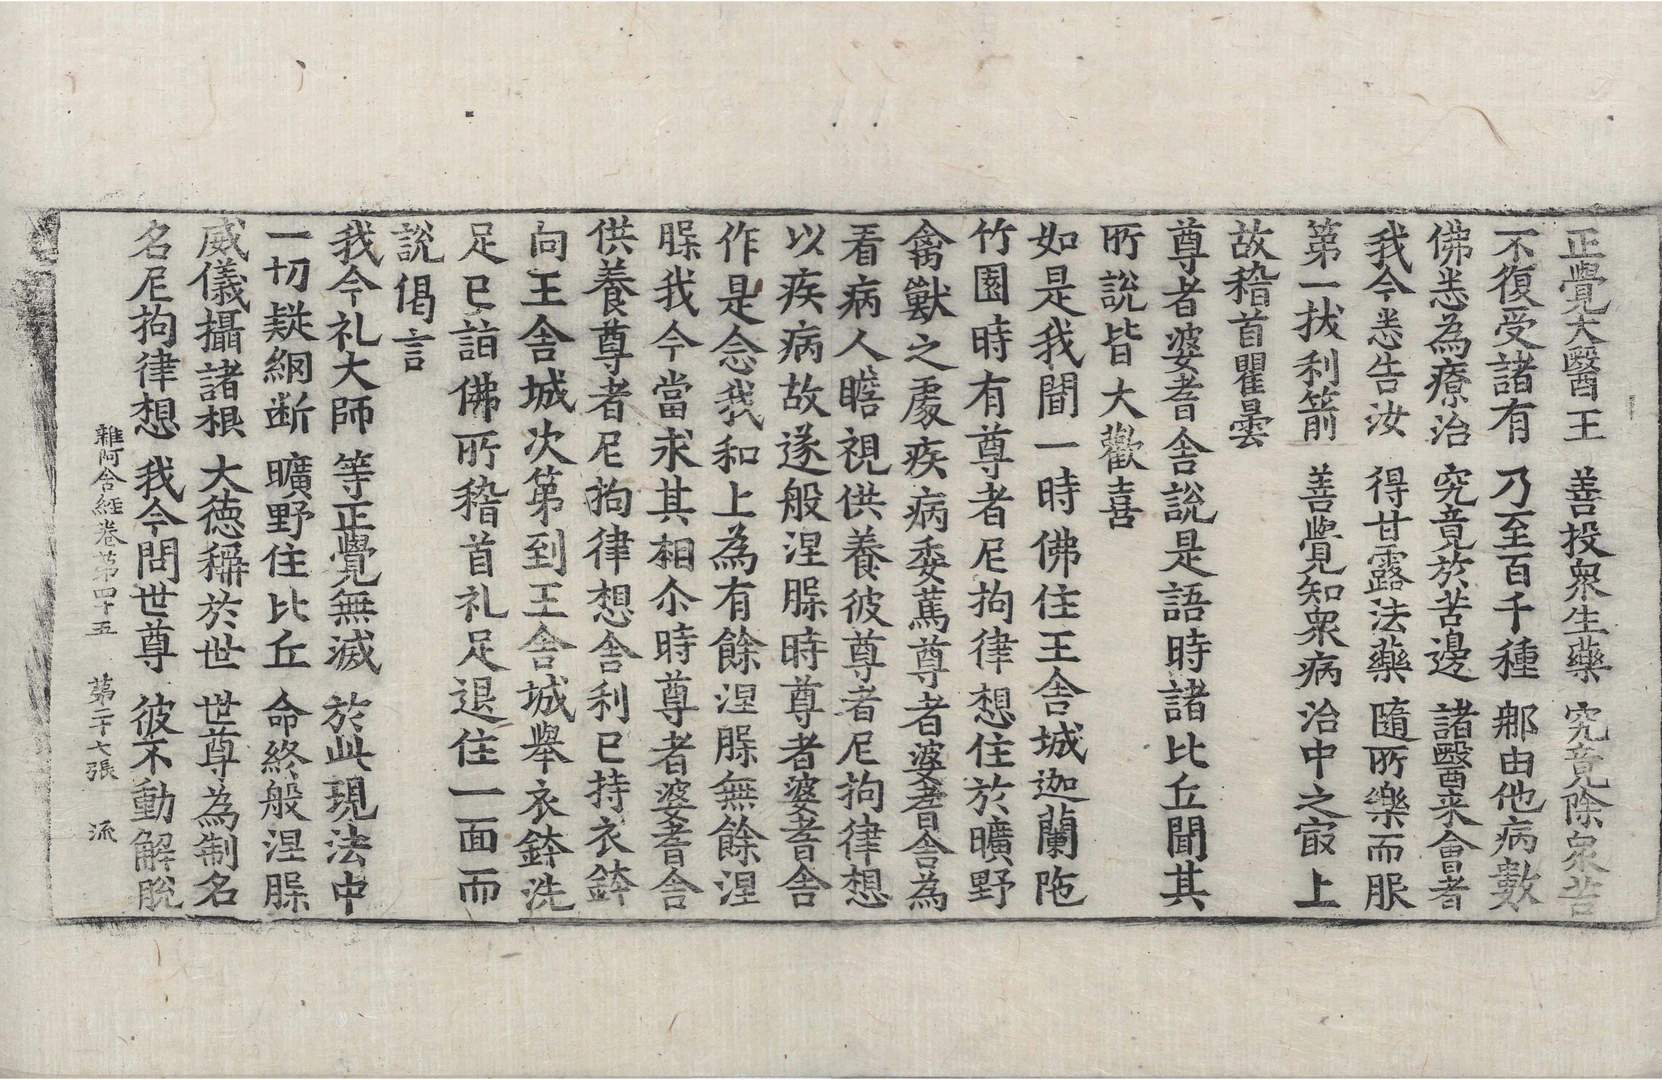 正覺大醫王　善投衆生藥　究竟除衆苦
不復受諸有　乃至百千種　郍由他病數
佛悉為療治　究竟於苦邊　諸醫来會者
我今悉告汝　得甘露法藥　隨所樂而服
第一拔利箭　善覺知衆病　治中之㝡上
故稽首瞿曇
尊者婆耆舎說是語時諸比丘聞其
所說皆大歡喜
如是我聞一時佛住王舎城迦蘭陁
竹園時有尊者尼拘律想住於曠野
禽獸之䖏疾病委篤尊者婆耆舎為
看病人瞻視供養彼尊者尼拘律想
以疾病故遂般涅𦕈時尊者婆耆舎
作是念我和上為有餘涅𦕈無餘涅
𦕈我今當求其相尒時尊者婆耆舎
供養尊者尼拘律想舎利已持衣鉢
向王舎城次第到王舎城舉衣鉢洗
足已詣佛所稽首礼足退住一面而
說偈言
我今礼大師　等正覺無滅　於此現法中
一切疑網断　曠野住比丘　命終般涅𦕈
威儀攝諸根　大徳稱於世　世尊為制名
名尼拘律想　我今問世尊　彼不動解脫
雜阿含經卷第四十五　第二十七張　派